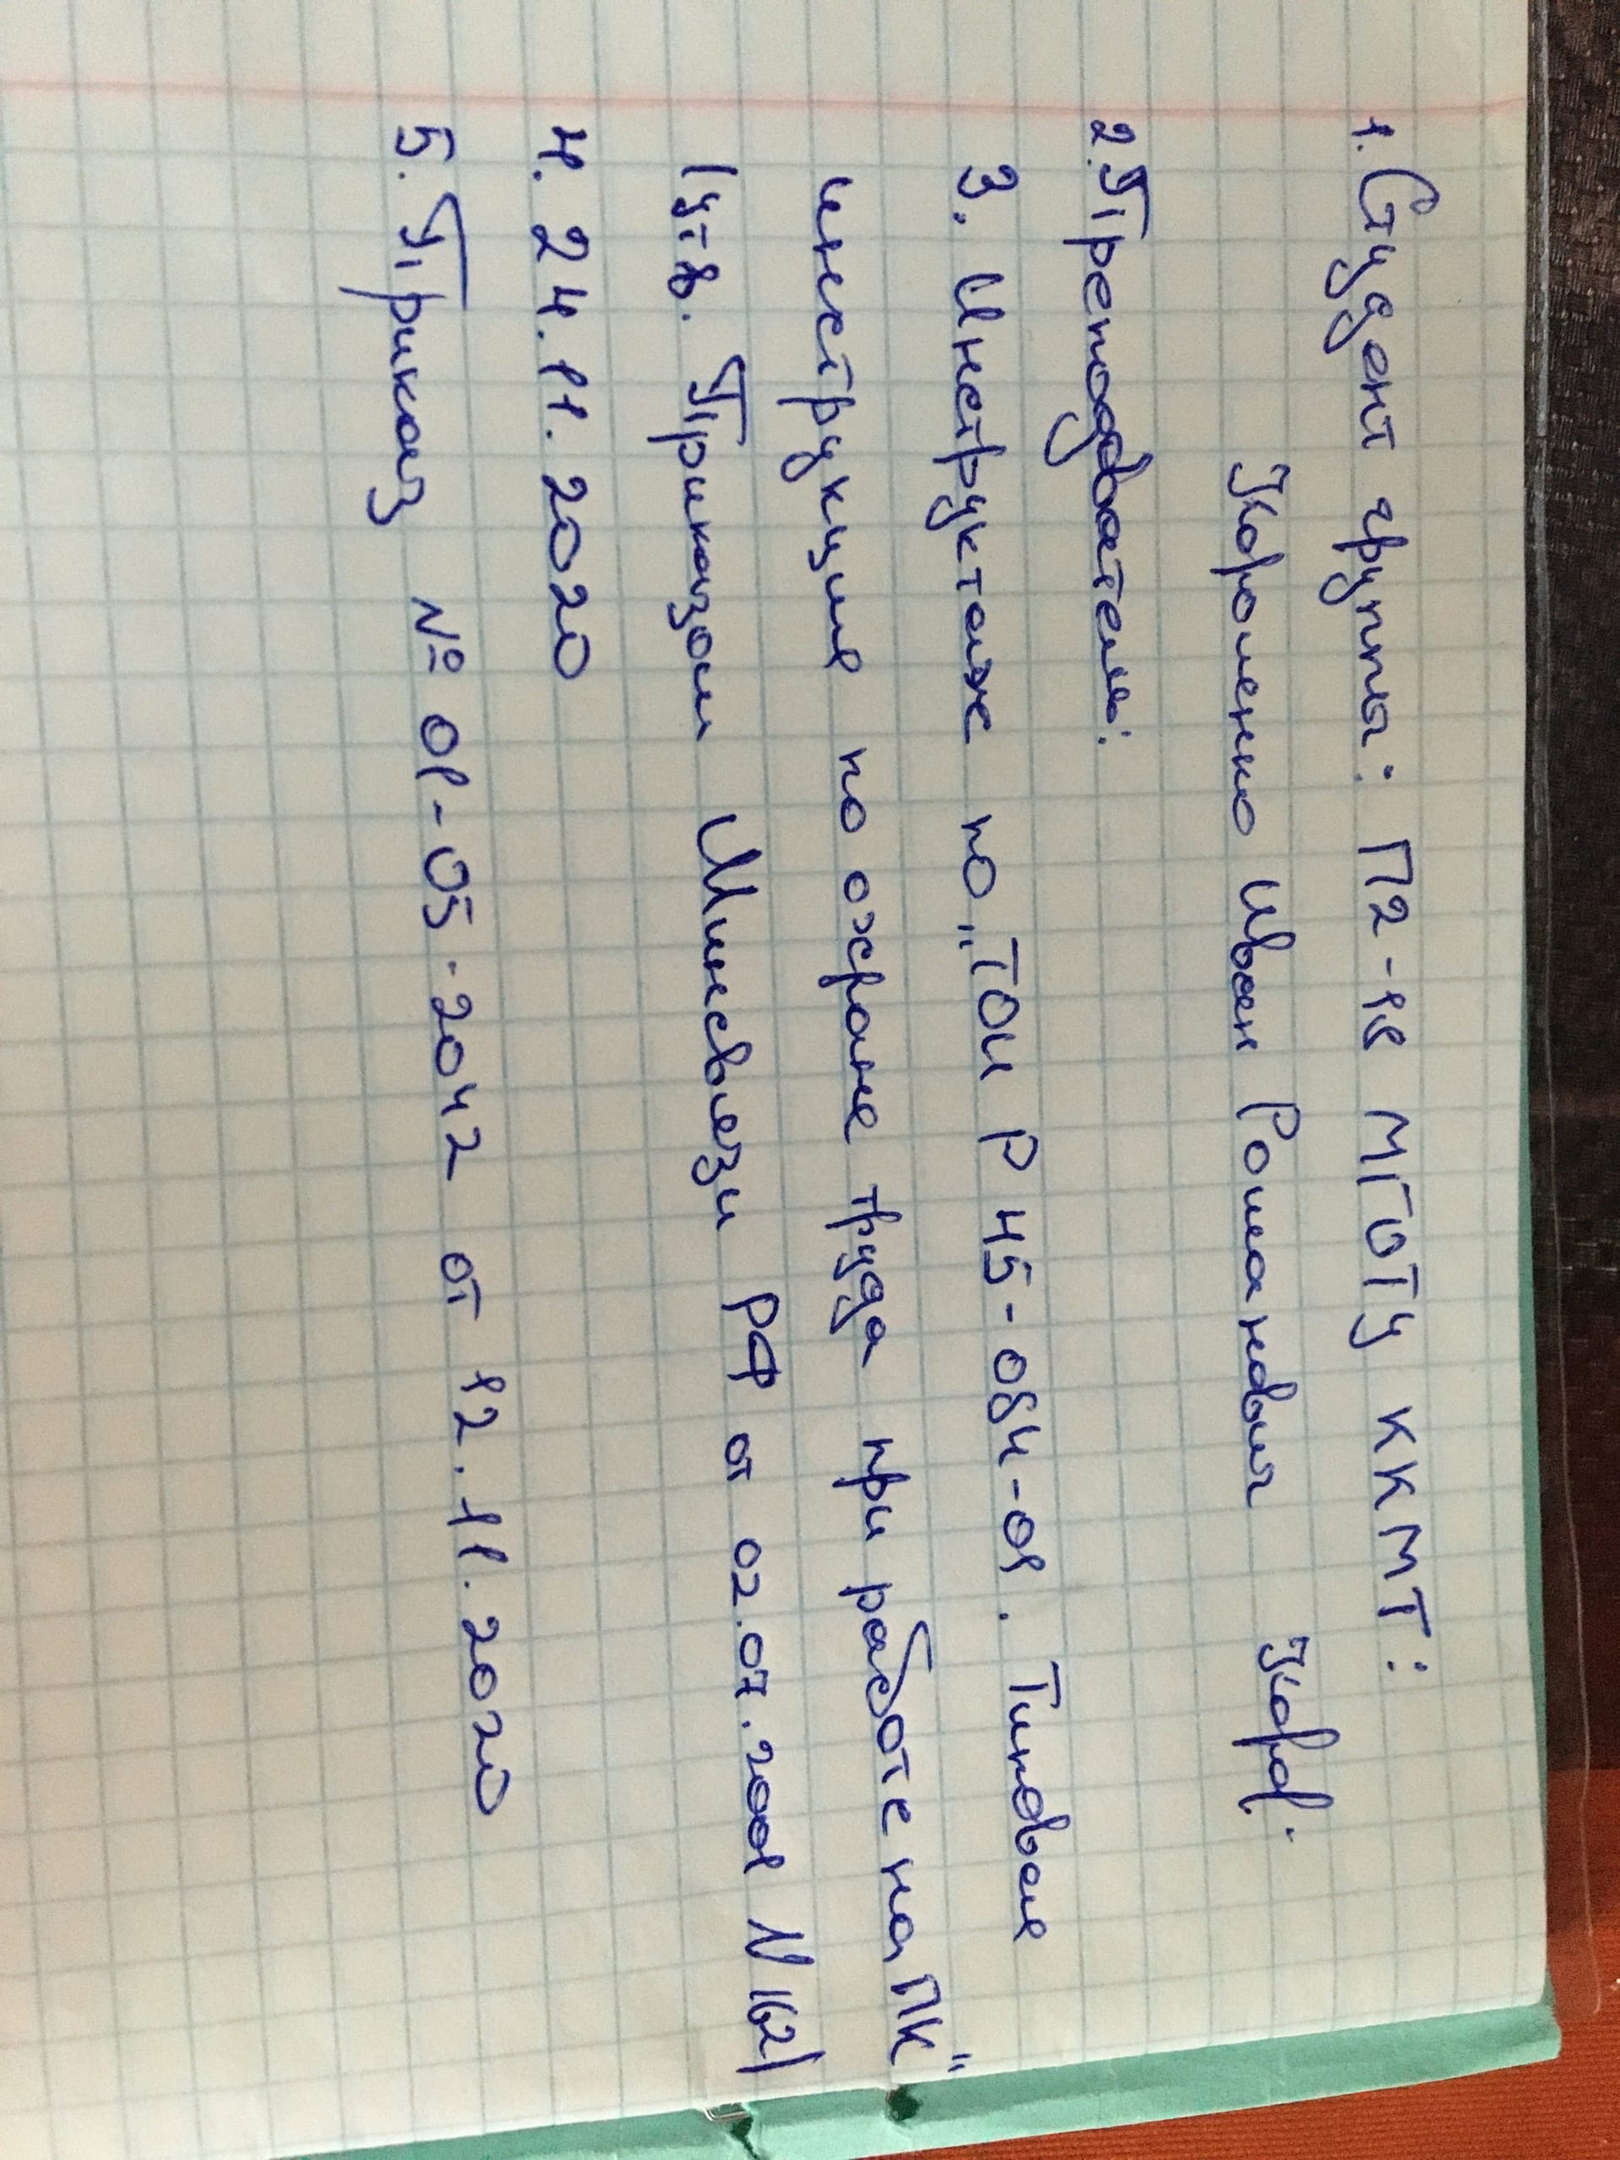 1. Студент группы: П2-18 МГОТУ ККМТ:
Короленко Иван Романович Корol.
2. Преподователь:
3. Инструктаж по „ТОИ Р 45-084-01. Типовая
инструкция по охране труда при работе на ПК"
(утв. Приказом Минсвязи РФ от 02.07.2001 N 162)
4. 24.11.2020
5. Приказ № 01-05-2042 от 12.11.2020